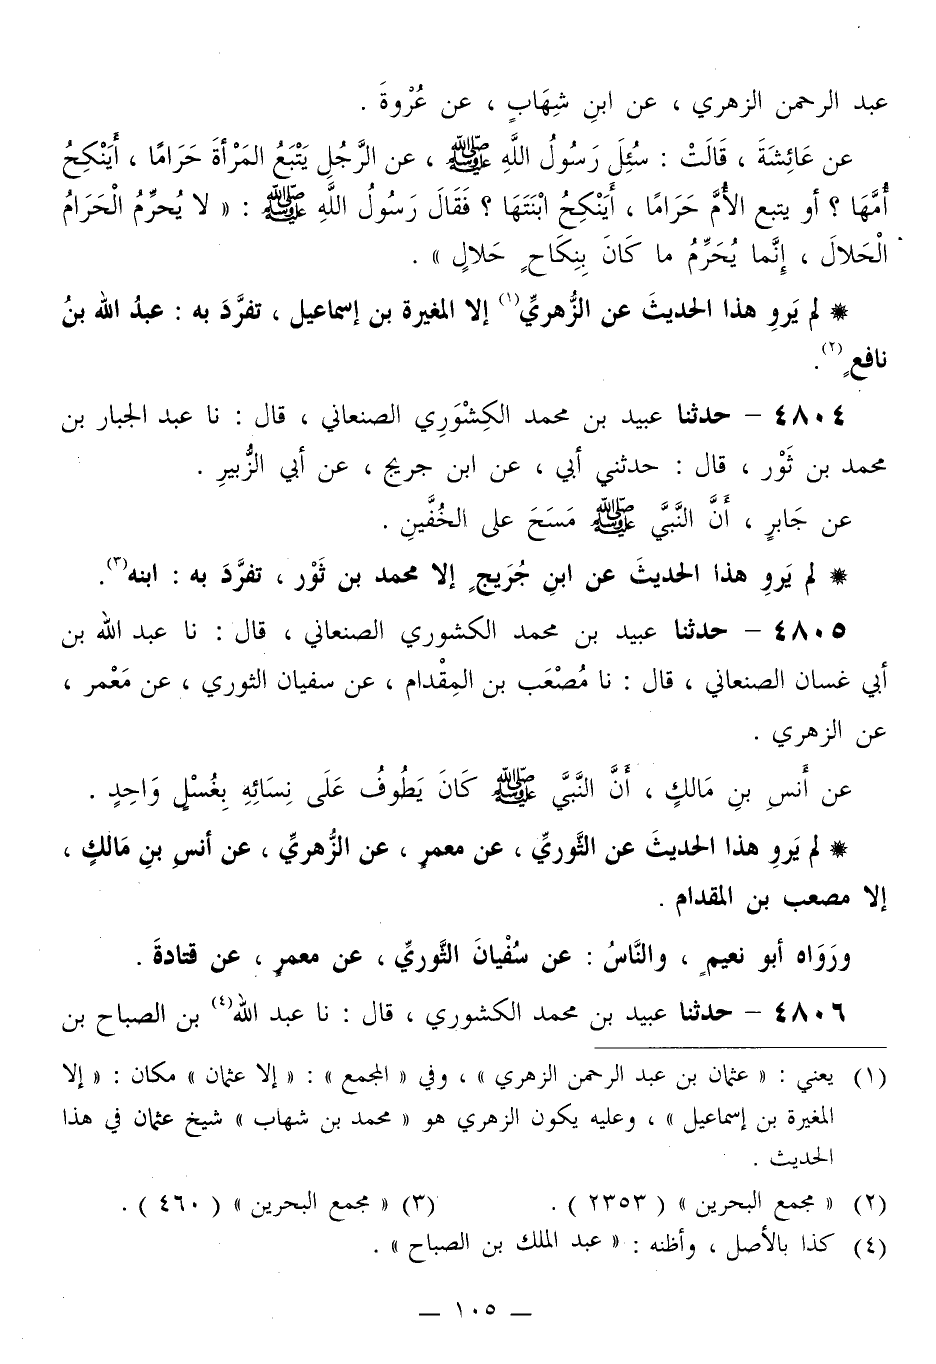 عبد الرحمن الزهري ، عن ابنِ شِهَابٍ ، عن عُرْوةَ .
عن عَائِشةَ ، قَالَتْ : سُئِلَ رَسُولُ اللَّهِ ﷺ ، عن الرَّجُلِ يَتْبَعُ المَرْأةَ حَرَامًا ، أَيَنْكِحُ
أُمَّهَا ؟ أو يتبع الأُمَّ حَرَامًا ، أَيَنْكِحُ ابْنَتَهَا ؟ فَقَالَ رَسُولُ اللَّهِ ﷺ : « لا يُحرِّمُ الْحَرَامُ
الْحَلالَ ، إِنَّما يُحَرِّمُ ما كَانَ بِنِكَاحٍ حَلالٍ » .
* لم يَروِ هذا الحديثَ عن الزُّهريِّ(١) إلا المغيرة بن إسماعيل ، تفرَّدَ به : عبدُ الله بنُ
نافعٍ(٢).
٤٨٠٤ – حدثنا عبيد بن محمد الكِشْوَرِي الصنعاني ، قال : نا عبد الجبار بن
محمد بن ثَوْر ، قال : حدثني أبي ، عن ابن جريج ، عن أبي الزُّبيرِ .
عن جَابرٍ ، أَنَّ النَّبيَّ ﷺ مَسَحَ على الخُفَّينِ .
* لم يَروِ هذا الحديثَ عن ابنِ جُرَيجٍ إلا محمد بن ثَوْر ، تفرَّدَ به : ابنه(٣).
٤٨٠٥ – حدثنا عبيد بن محمد الكشوري الصنعاني ، قال : نا عبد الله بن
أبي غسان الصنعاني ، قال : نا مُصْعَب بن المِقْدام ، عن سفيان الثوري ، عن مَعْمر ،
عن الزهري .
عن أَنسِ بنِ مَالكٍ ، أَنَّ النَّبيَّ ﷺ كَانَ يَطُوفُ عَلَى نِسَائِهِ بِغُسْلٍ وَاحِدٍ .
* لم يَروِ هذا الحديثَ عن الثَّوريِّ ، عن معمرٍ ، عن الزُّهريِّ ، عن أنسِ بنِ مَالكٍ ،
إلا مصعب بن المقدام .
ورَوَاه أبو نعيمٍ ، والنَّاسُ : عن سُفْيانَ الثَّوريِّ ، عن معمرٍ ، عن قتادةَ .
٤٨٠٦ – حدثنا عبيد بن محمد الكشوري ، قال : نا عبد الله(٤) بن الصباح بن
(١) يعني : « عثمان بن عبد الرحمن الزهري » ، وفي « المجمع » : « إلا عثمان » مكان : « إلا
المغيرة بن إسماعيل » ، وعليه يكون الزهري هو « محمد بن شهاب » شيخ عثمان في هذا
الحديث .
(٢) « مجمع البحرين » ( ٢٣٥٣ ) . (٣) « مجمع البحرين » ( ٤٦٠ ) .
(٤) كذا بالأصل ، وأظنه : « عبد الملك بن الصباح » .
— ١٠٥ —